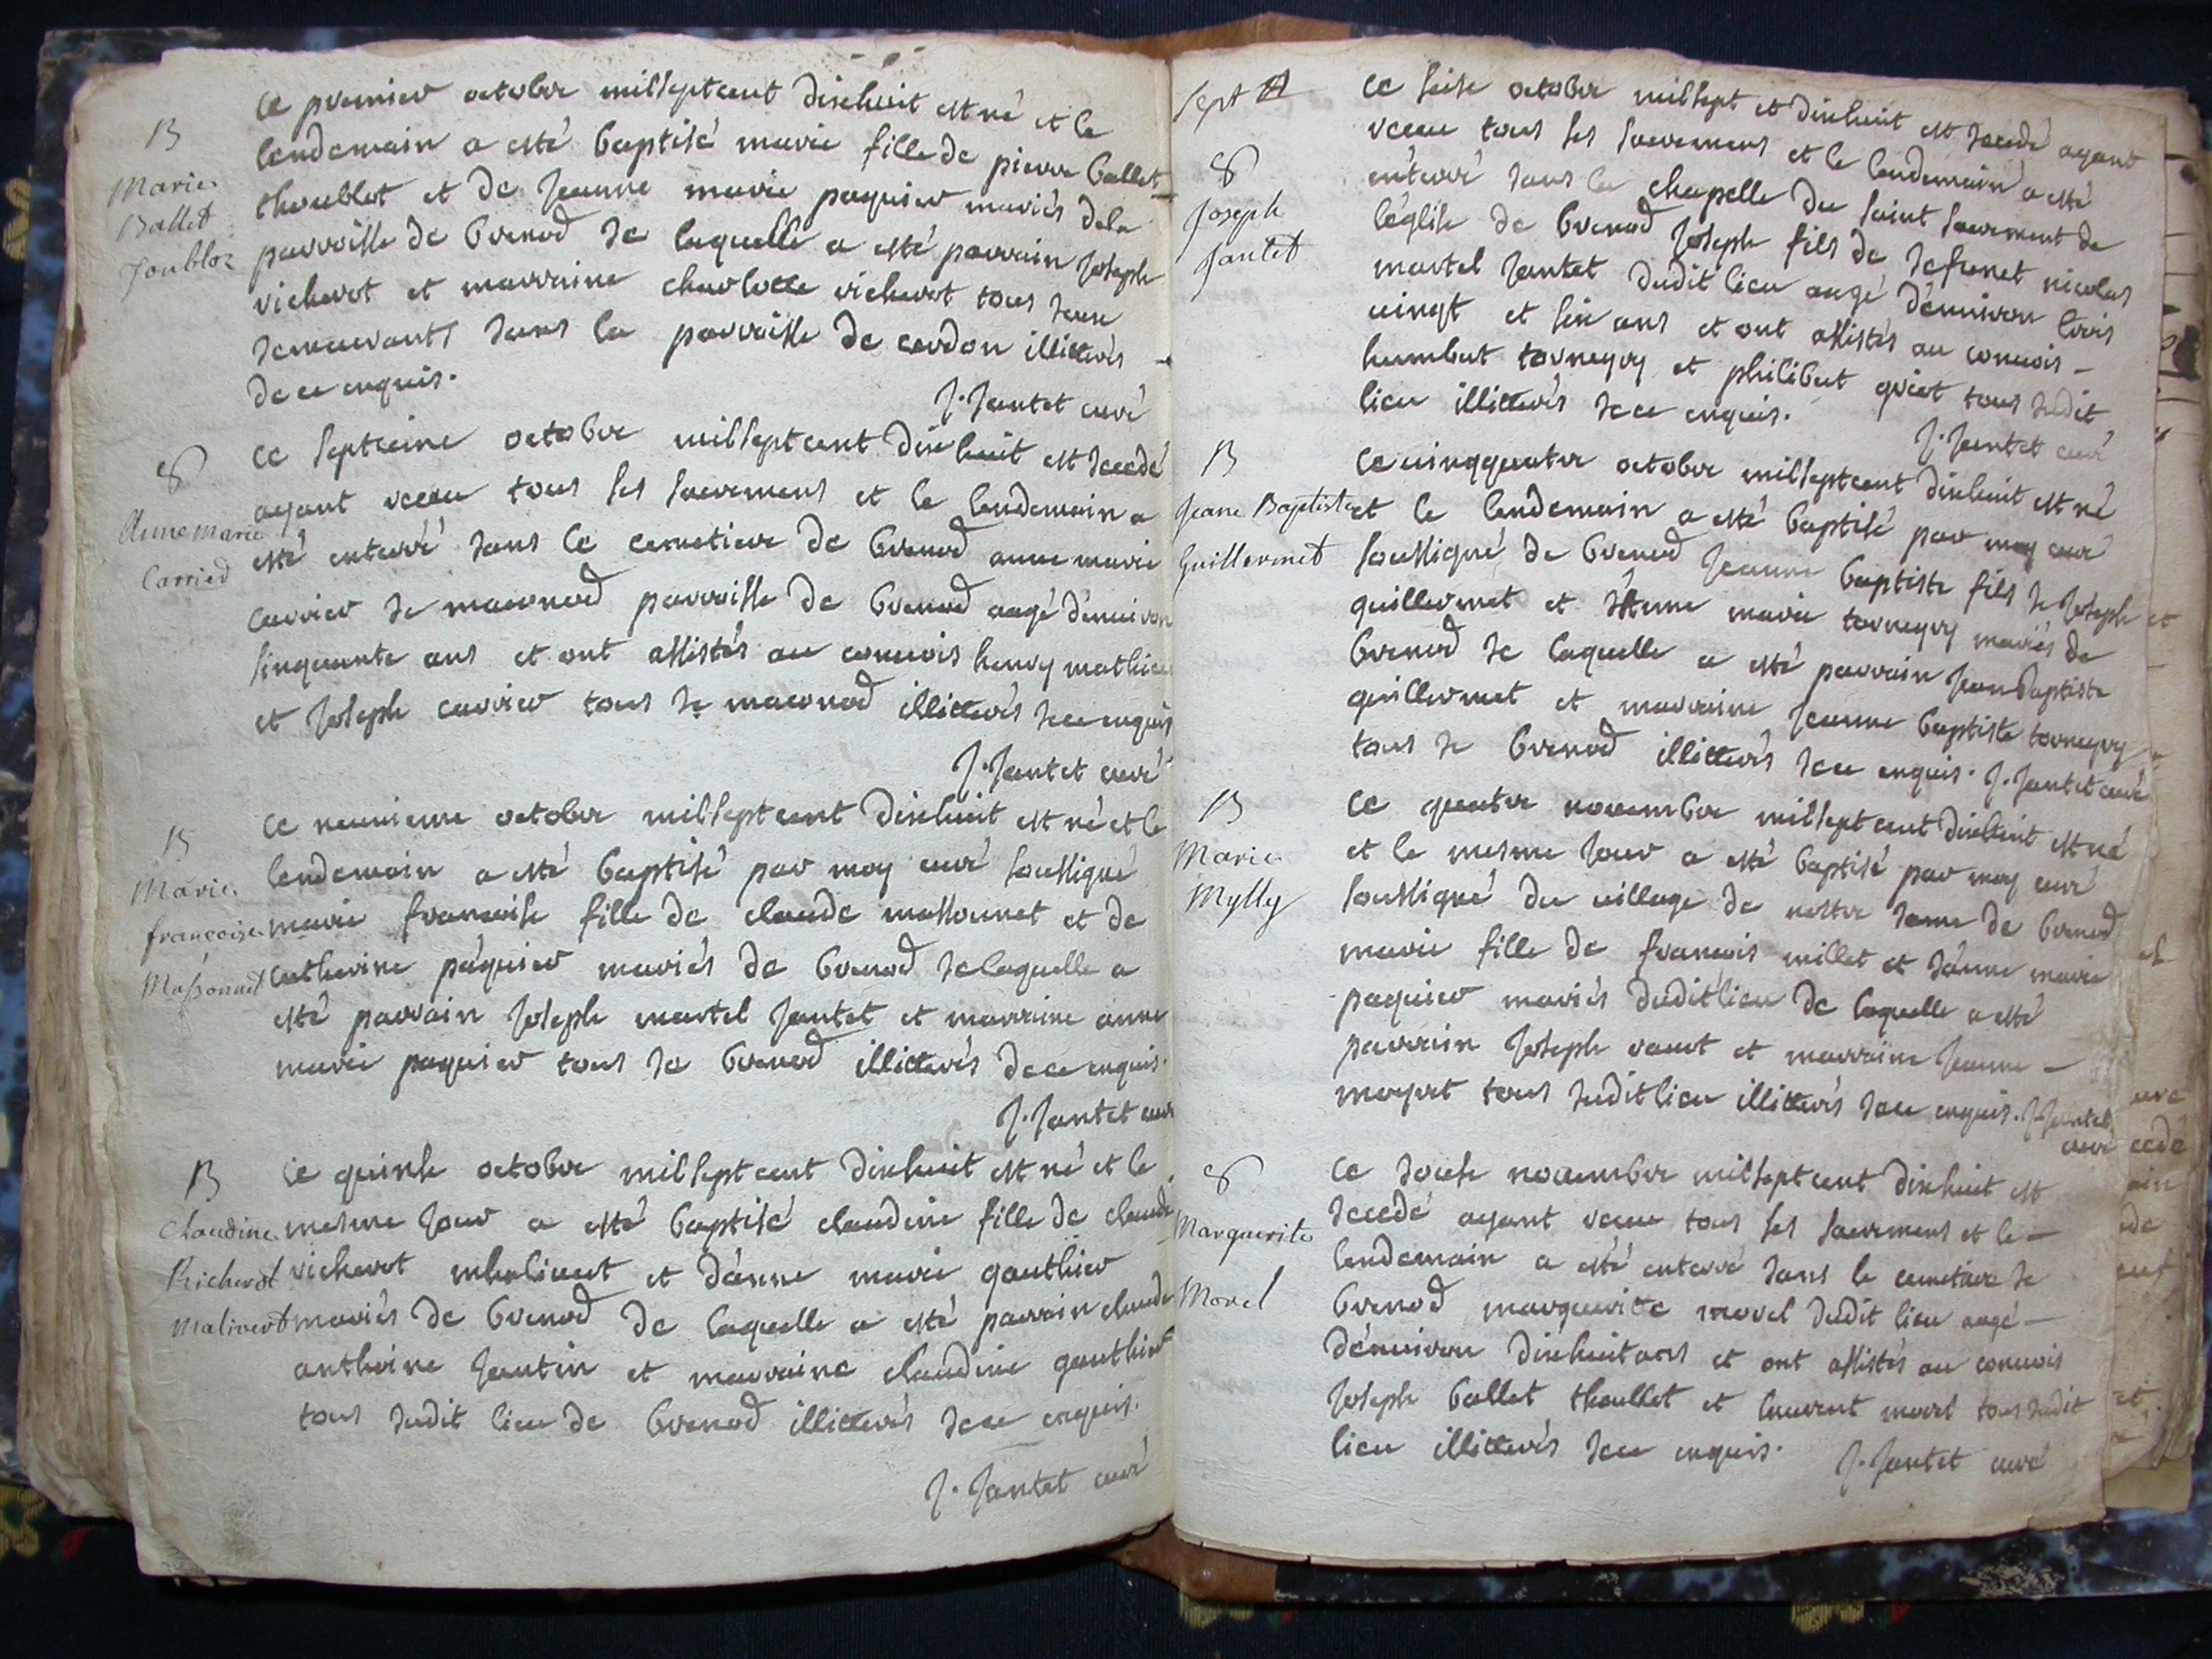 B
Marie
Ballet
Joubloz
Ce premier octobre milseptcent dixhuit est né et le
lendemain a esté baptisé marie fille de pierre ballet
thoublot et de Jeanne marie paquier mariés dela
parroisse de brenod de laquelle a esté parrain Joseph
richerot et marraine charlotte richerot tous deux
demeurants dans la parroisse de cerdon illitterés
de ce enquis.
J. Jantet curé
8
Anne marie
Carrier
Ce septieme octobre milseptcent dixhuit est decedé
ayant receu tous ses sacremens et le lendemain a
esté enterré dans le cemetiere de brenod anne marie
carrier de maconod parroisse de brenod aagé d'environ
sinquante ans et ont assistés au convois henry mathieu
et Joseph carrier tous de maconod illitterés de ce enquis
J. Jantet curé
B
Marie
françoise
Massonnet
Ce neuvieme octobre milseptcent dixhuit est né et le
lendemain a esté baptisé par moy curé soussigné
marie francoise fille de claude massonnet et de
catherine pàquier mariés de brenod de laquelle a
esté parrain Joseph martel Jantet et marraine anne
marie paquier tous de brenod illitterés de ce enquis.
J. Jantet curé
B
Claudine
Richerot
Malivert
Ce quinse octobre milseptcent dixhuit est né et le
mesme Jour a esté baptisé claudine fille de claude
richerot malivert et d'anne marie gauthier
mariés de brenod de laquelle a esté parrain claude
anthoine Jantin et marraine claudine gauthier
tous dudit lieu de brenod illitterés de ce enquis.
J. Jantet curé
Sept
8
Joseph
Jantet
Ce seise octobre milsept et dixhuit est decedé ayant
receu tous ses sacremens et le lendemain a esté
enterré dans la chapelle du saint sacrement de
léglise de brenod Joseph fils de defunet nicolas
martel Jantet dudit lieu aagé d'environ trois
vingt et six ans et ont assistés au convois –
humbert torneyry et philibert qvict tous dudit
lieu illitterés de ce enquis.
J. Jantet curé
B
Jeane Baptiste
Guillermet
Ce vingquatre octobre milseptcent dixhuit est né
et le lendemain a esté baptisé par moy curé
soussigné de brenod Jeanne baptiste fils de Joseph
guillermet et d'Anne marie torneyry mariés de
brenod de laquelle a esté parrain Jean Baptiste
guillermet et marraine Jeanne baptiste torneyry
tous de brenod illitterés de ce enquis. J. Jantet curé
B
Marie
Mylly
Ce quatre novembre milseptcent dixhuit est né
et le mesme Jour a esté baptisé par moy curé
soussigné du village de dame de brenod
marie fille de francois millet et d'anne marie
paquier mariés duditlieu de laquelle a esté
parrain Joseph et marraine Jeanne –
tous duditlieu illitterés de ce enquis. J. Jantet
curé
8
Marguerite
Morel
Ce douse novembre milseptcent dixhuit est
decedé ayant receu tous ses sacremens et le –
lendemain a esté enterré dans le cemetiere de
brenod marguerite morel dudit lieu aagé –
d'environ dixhuit ans et ont assistés au convois
Joseph ballet thoullot et laurent morel tous dudit
lieu illitterés de ce enquis.
J. Jantet curé